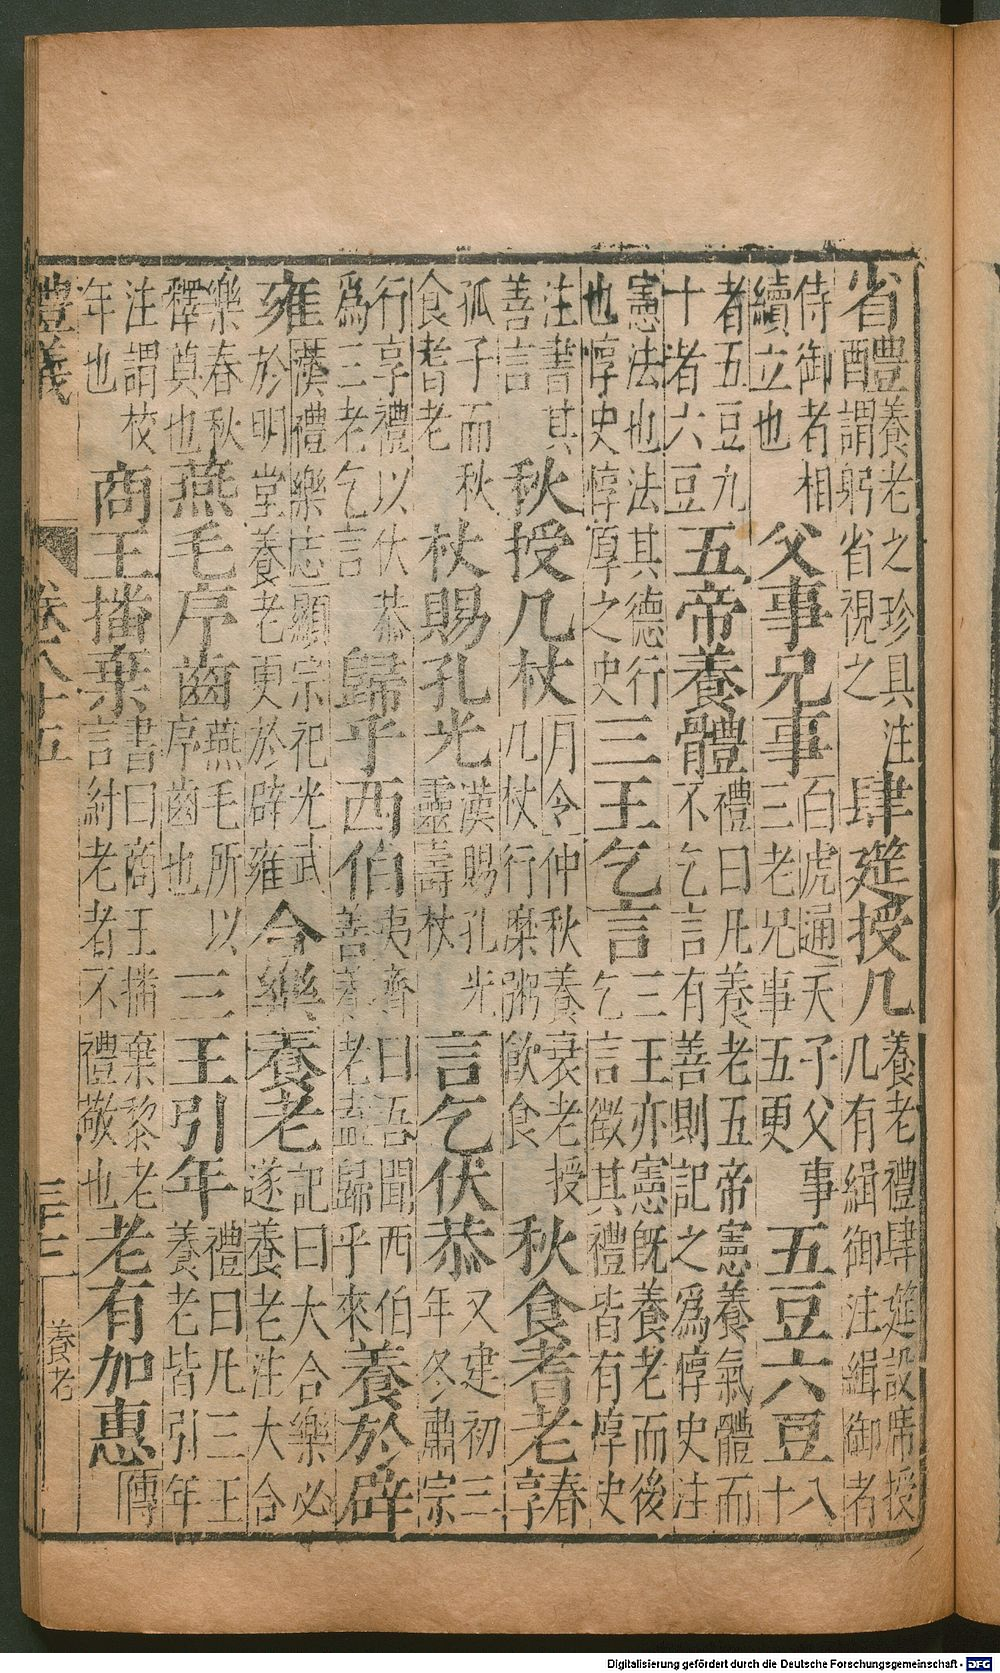 省醴養老之珍具注謂躬省視之肆筵授几養老禮肆筵設席授几有緝御注緝御者
侍御者相續立也父事兄事白虎通天子父事三老兄事五更五豆六豆八十
者五豆九十者六豆五帝養體禮曰凡養老五帝憲養氣體而不乞言有善則記之爲惇史注
憲法也法其德行也惇史惇厚之史三王乞言三王亦憲既養老而後乞言徵其禮皆有惇史
注書其善言秋授几杖月令仲秋養衰老授几杖行糜粥飲食秋食耆老春享
孤子而秋食耆老杖賜孔光漢賜孔光靈壽杖言乞伏恭又建初三年冬肅宗
行享禮以伏恭爲三老乞言歸乎西伯夷齊曰吾聞西伯善養老盍歸乎來養於辟
雍漢禮樂志顯宗祀光武於明堂養老更於辟雍合樂養老記曰大合樂必遂養老注大合
樂春秋釋奠也燕毛序齒燕毛所以序齒也三王引年禮曰凡三王養老皆引年
注謂校年也商王播棄書曰商王播棄黎老言紂老者不禮敬也老有加惠傳
禮義 卷八十五 養老
Digitalisierung gefördert durch die Deutsche Forschungsgemeinschaft - DFG